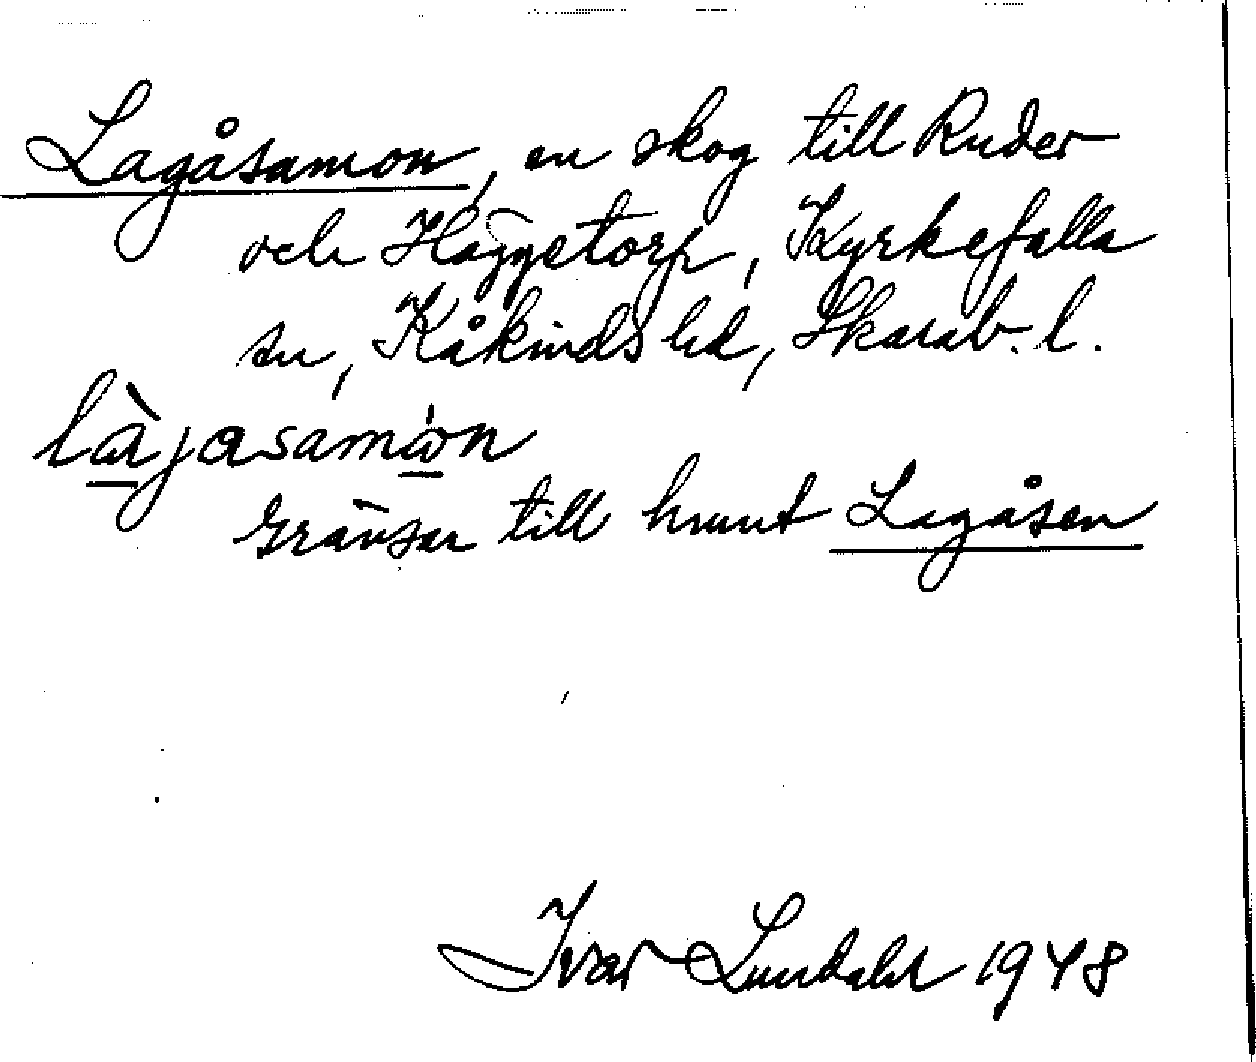 Lagåsamon, en skog till Ruder
och Häggetorp, Kyrkefalla
sn, Kåkinds hd, Skarab. l.
làjasamón
Gränsar till hmnt Lagåsen
Ivar Lundahl 1948